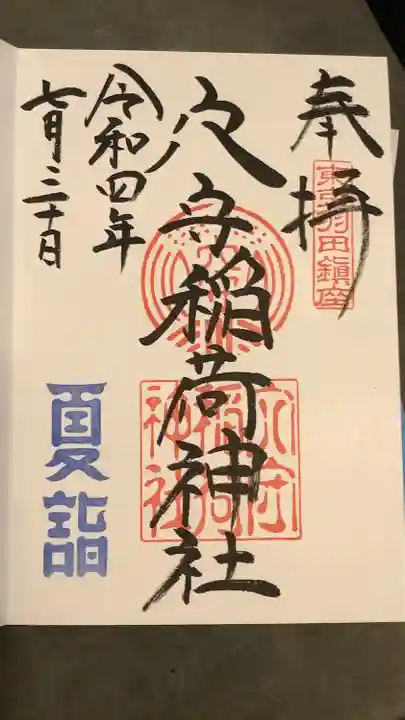 奉拝
東京羽田鎮座
穴守稲荷神社
穴守稲荷神社
令和四年
七月三十日
夏詣